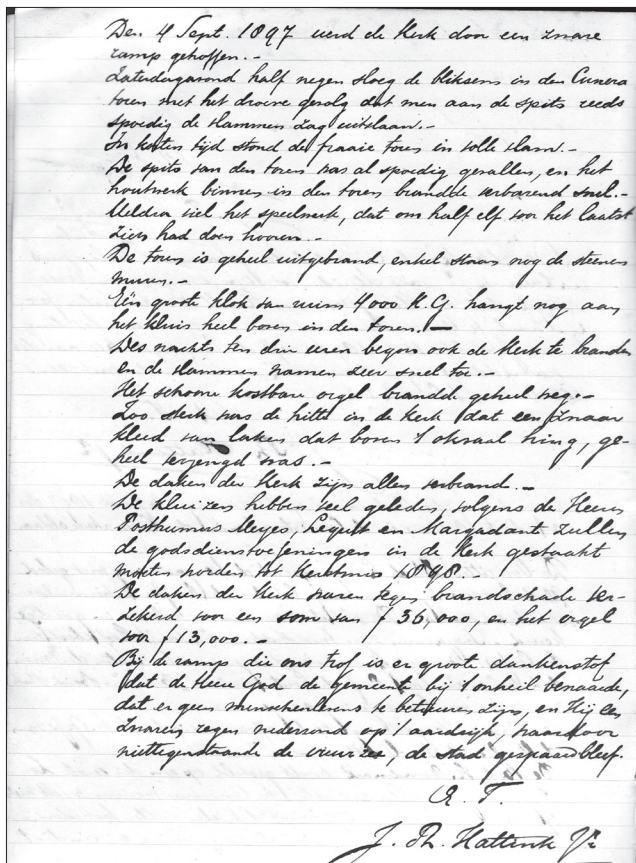 Den 4 Sept. 1897 werd de Kerk door een zware
ramp getroffen. -
Zaterdagavond half negen sloeg de bliksem in den Cunera
toren met het droeve gevolg dat men aan de spits reeds
spoedig de vlammen zag uitslaan. -
In korten tijd stond de fraaie toren in volle vlam. -
De spits van den toren was al spoedig gevallen, en het
houtwerk binnen in den toren brandde verbazend snel. -
Weldra viel het speelwerk, dat om half elf voor het laatst
zich had doen hooren. -
De toren is geheel uitgebrand, enkel staan nog de steenen
muren. -
Eén groote klok van ruim 4000 K.G. hangt nog aan
het kluis heel boven in den toren. -
Des nachts ten drie uren begon ook de Kerk te branden
en de vlammen namen zeer snel toe. -
Het schoone kostbare orgel brandde geheel weg. -
Zoo sterk was de hitte in de Kerk dat een zwaar
kleed van laken dat boven 't oksaal hing, ge-
heel verzengd was. -
De daken der Kerk zijn allen verbrand. -
De kluizen hebben veel geleden, volgens de Heeren
Posthumus Meyes, en Margadant zullen
de godsdienstoefeningen in de Kerk gestaakt
moeten worden tot Kerstmis 1898. -
De daken der Kerk waren tegen brandschade ver-
zekerd voor een som van f 36,000, en het orgel
voor f 13,000. -
Bij de ramp die ons trof is er groote dankenstof
dat de Heere God de gemeente bij 't onheil benaarde,
dat er geen menschenlevens te betreuren zijn, en Hij een
zwaren regen nederzond op 't aardrijk, waardoor
niettegenstaande de vuurzee, de stad gespaard bleef.
J. Th. Hattink